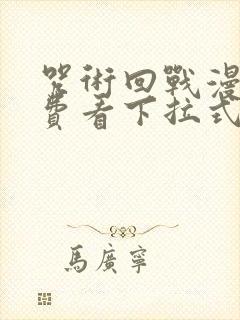 咒術回戰漫
費看下拉式
馬廣寧